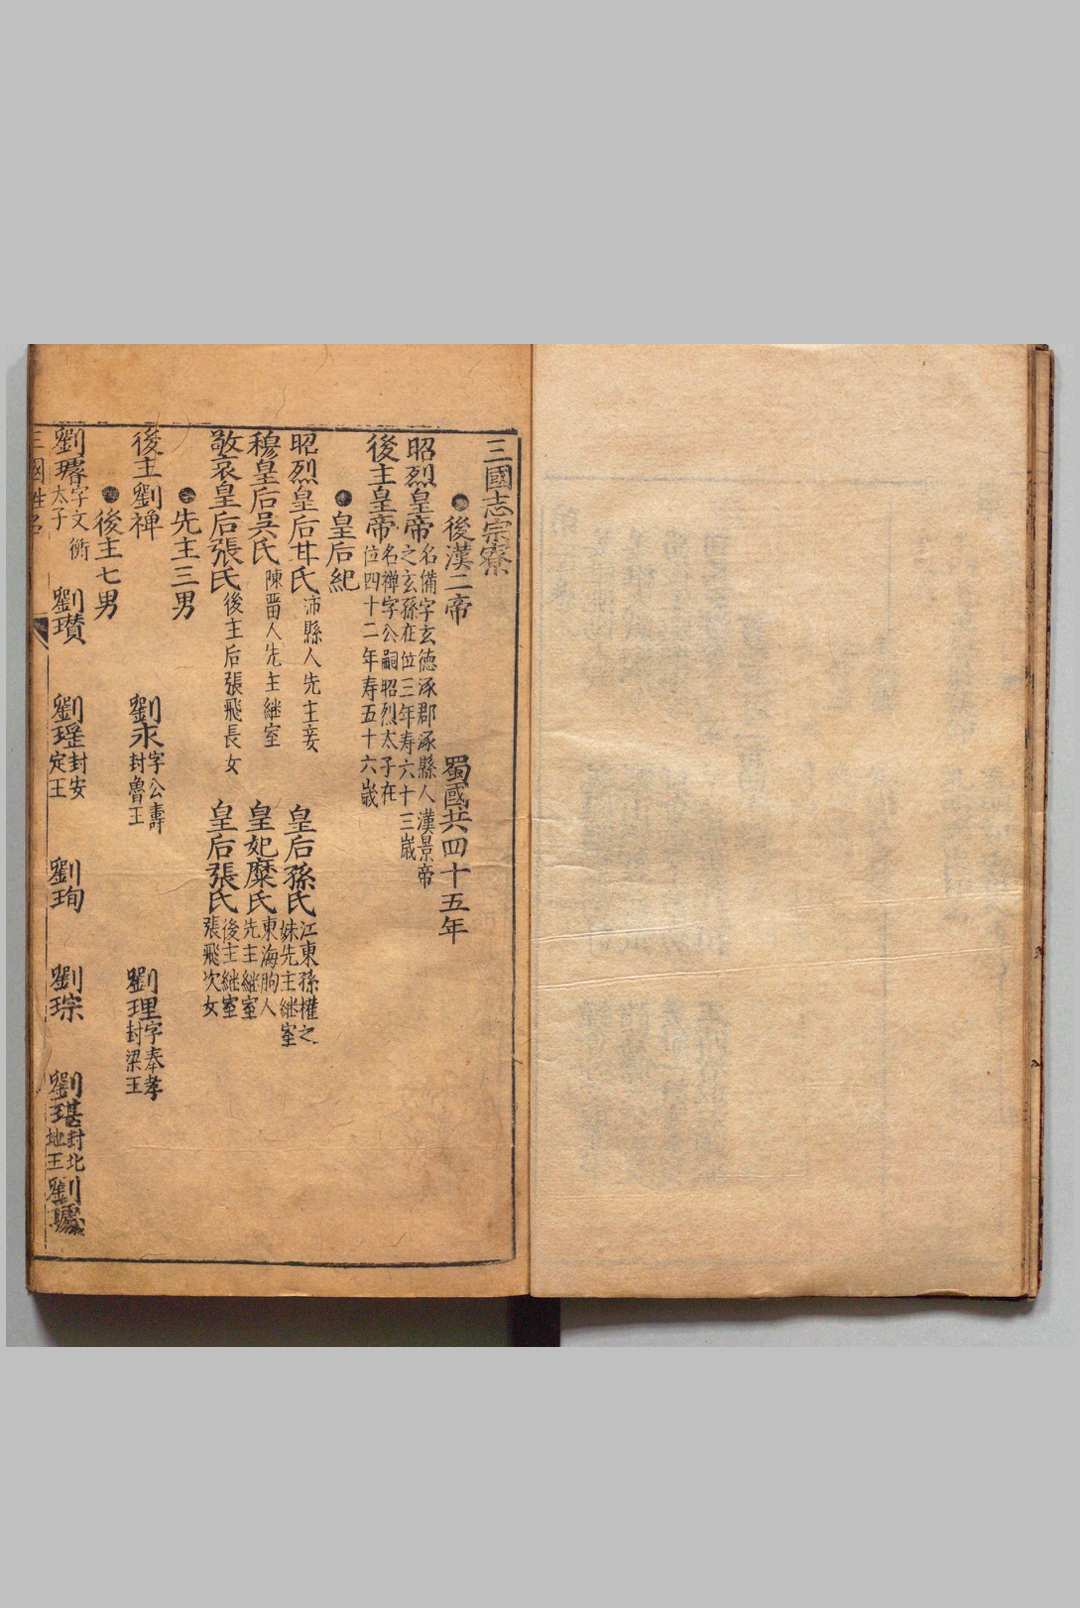 三國志宗寮
後漢二帝 蜀國共四十五年
昭烈皇帝 名備字玄德涿郡涿縣人漢景帝之玄孫在位三年寿六十三歲
後主皇帝 名禪字公嗣昭烈太子在位四十二年寿五十六歲
皇后紀
昭烈皇后甘氏 沛縣人先主妾 皇后孫氏 江東孫權之妹先主継室
穆皇后吳氏 陳畱人先主継室 皇妃糜氏 東海朐人先主継室
敬哀皇后張氏 後主后張飛長女 皇后張氏 後主継室張飛次女
先主三男
後主劉禅 劉永 字公壽封魯王 劉理 字奉孝封梁王
後主七男
劉璿 字文衡太子 劉瓚 劉瑤 封安定王 劉珣 劉琮 劉琪 封北地王 劉璩
三國姓名